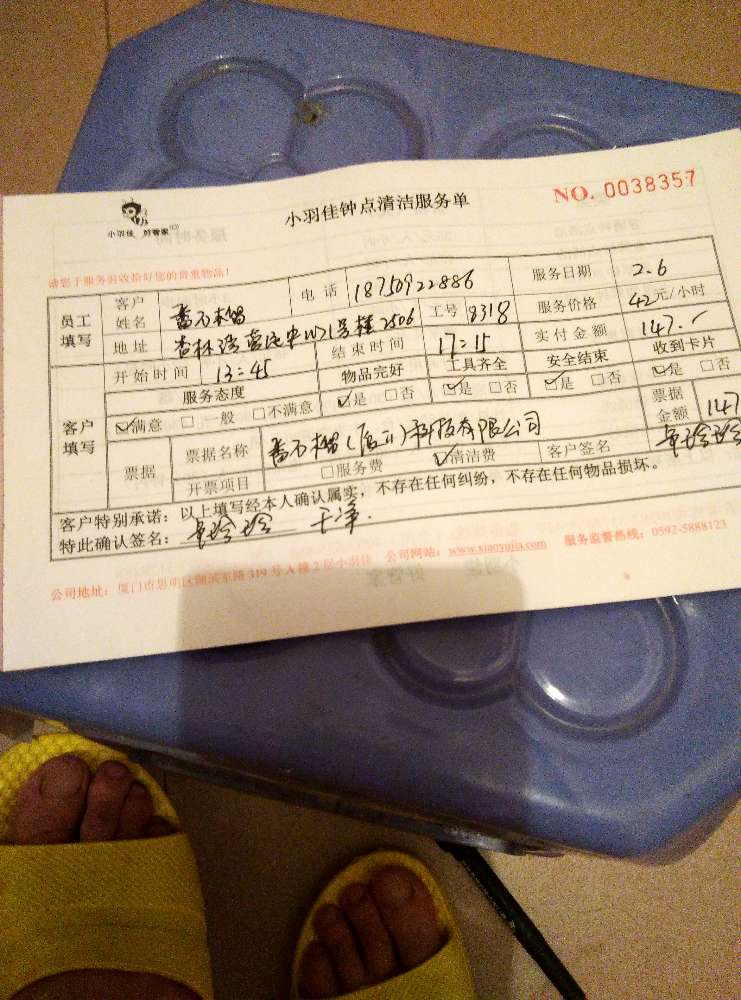 NO. 0038357
小羽佳钟点清洁服务单
小羽佳 好管家
请您于服务前收拾好您的贵重物品！
员工填写 客户姓名 番石榴 电话 18750922886 服务日期 2.6
地址 杏林湾营运中心1号楼2506 工号 8318 服务价格 42元/小时
客户填写 开始时间 13:45 结束时间 17:15 实付金额 147.-
服务态度 物品完好 工具齐全 安全结束 收到卡片
☑满意 □一般 □不满意 ☑是 □否 ☑是 □否 ☑是 □否 ☑是 □否
票据 票据名称 番石榴(厦门)科技有限公司 票据金额 147
开票项目 □服务费 ☑清洁费 客户签名
客户特别承诺：以上填写经本人确认属实，不存在任何纠纷，不存在任何物品损坏。
特此确认签名： 干净.
公司地址：厦门市思明区湖滨东路319号A幢2层小羽佳 公司网站：www.xiaoyujia.com 服务监督热线：0592-5888123